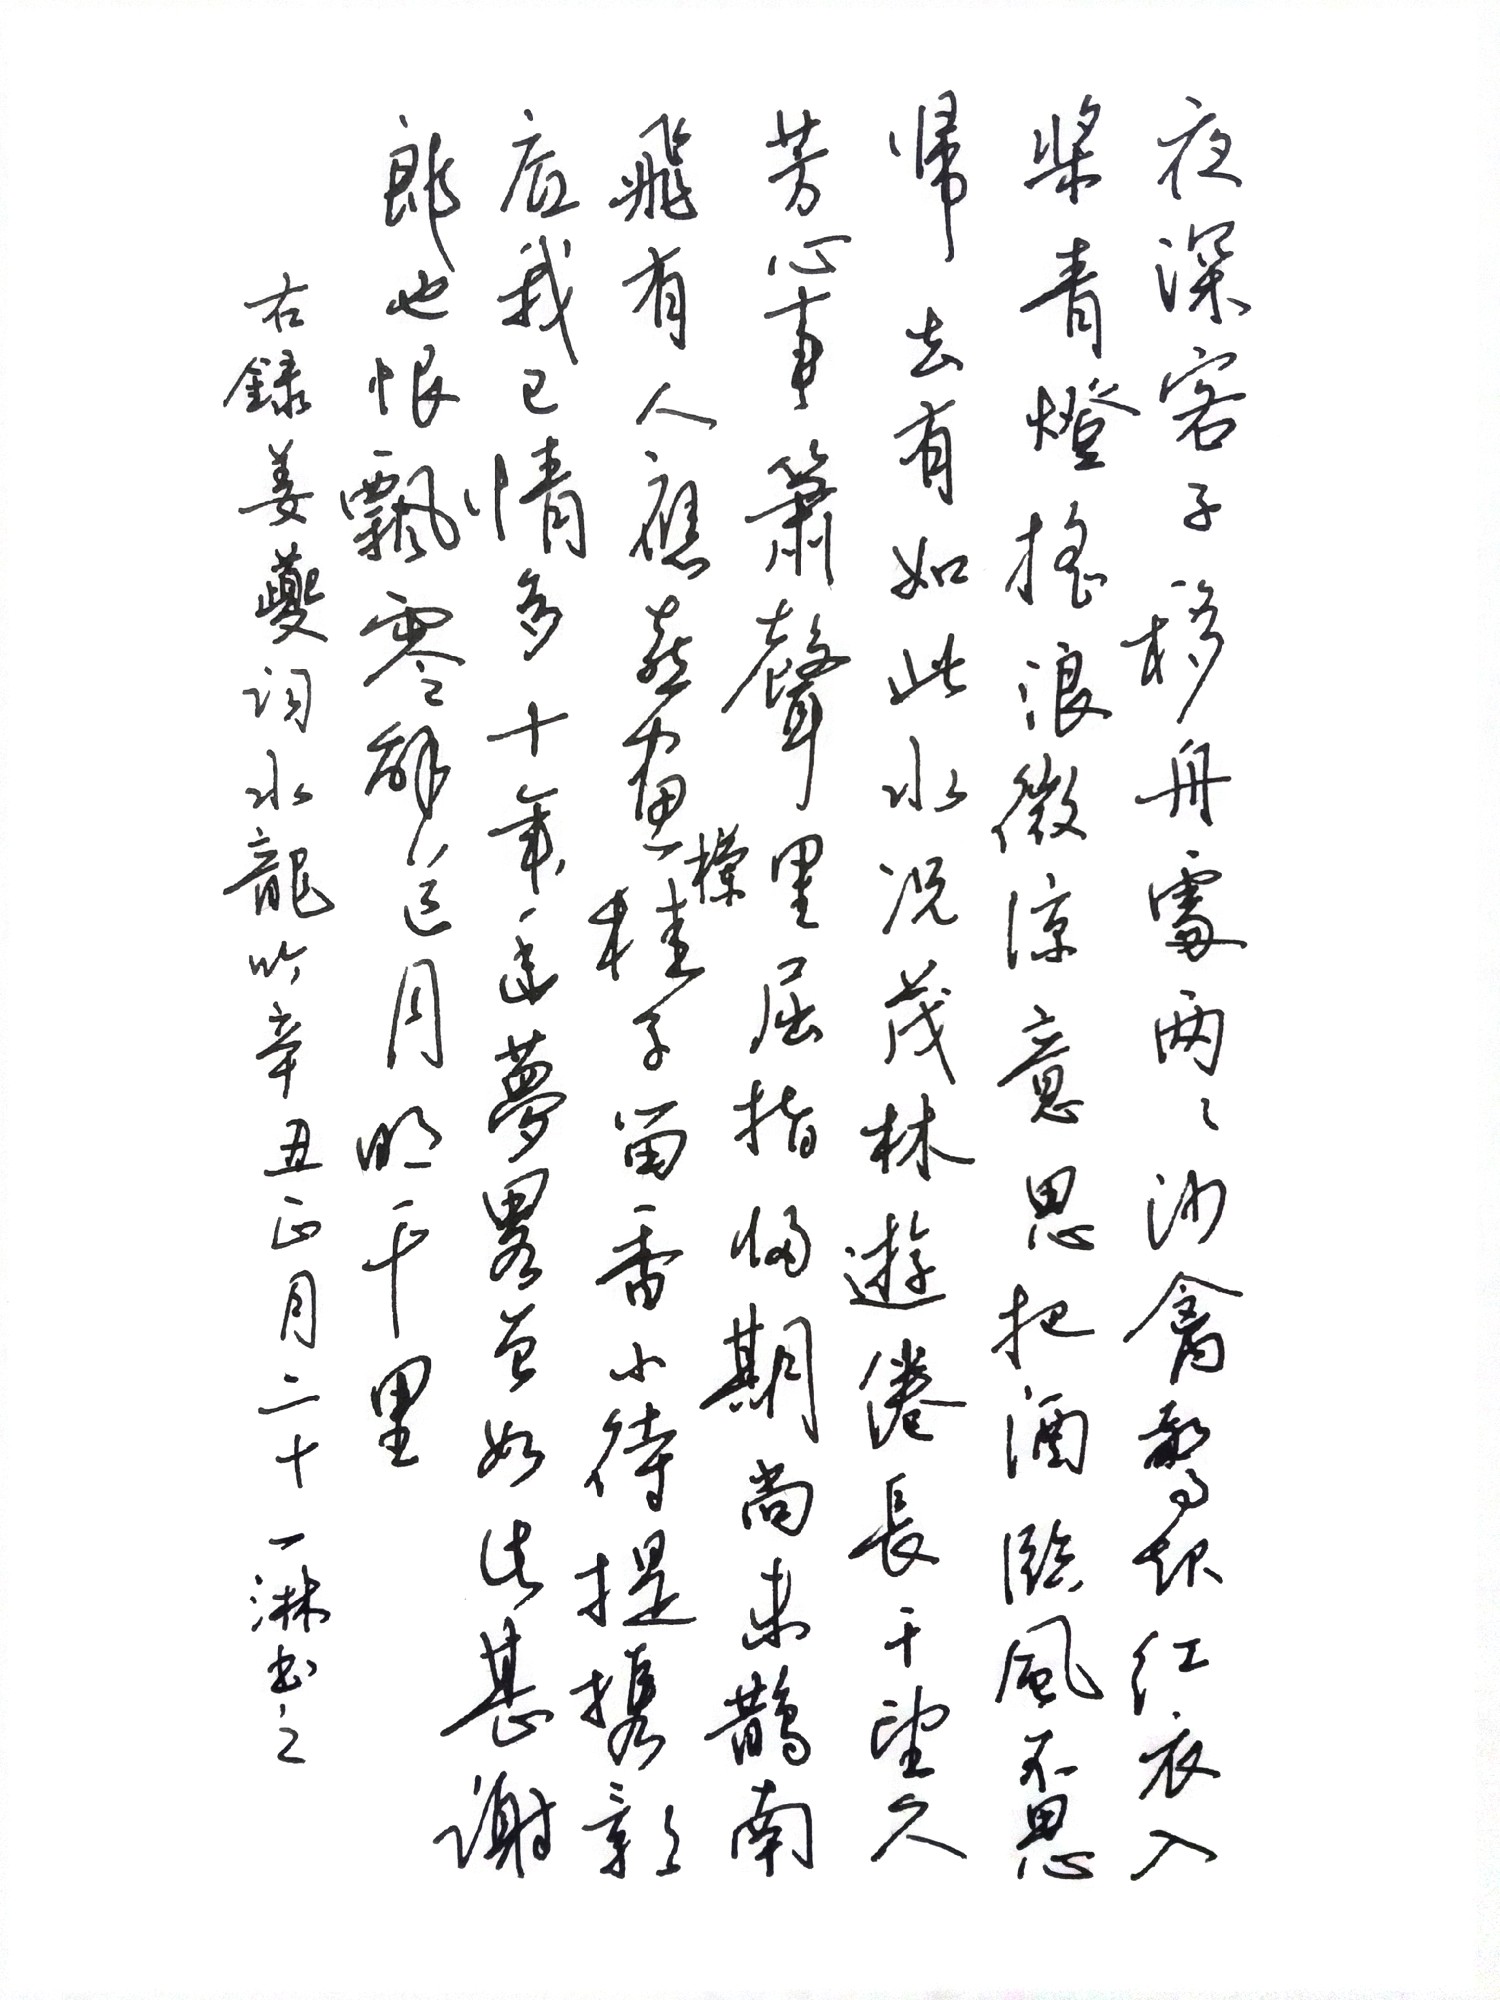 夜深客子移舟處两々沙禽驚起红衣入
槳青燈搖浪微涼意思把酒臨風不思
帰去有如此水況茂林遊倦長干望久
芳心事簫聲里屈指歸期尚未鵲南
飛有人應喜畫欄桂子留香小待提攜影
底我已情多十年幽夢畧曾如此甚謝
郎也恨飄零解道月明千里
右錄姜夔詞水龍吟辛丑正月二十一淋書之